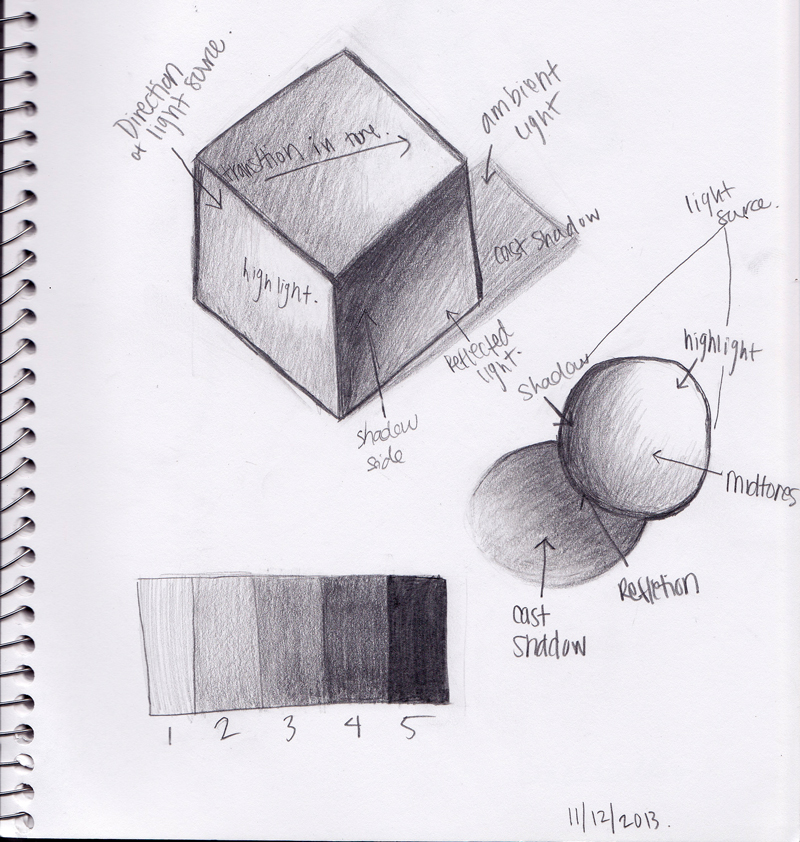 Direction
of light source.
transition in tone.
ambient
light
highlight.
cast shadow
reflected
light.
shadow
side
light
source.
highlight
shadow
midtones
Refletion
cast
shadow
1 2 3 4 5
11/12/2013.